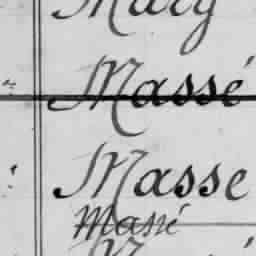 Mary
Massé
Masse
Massé